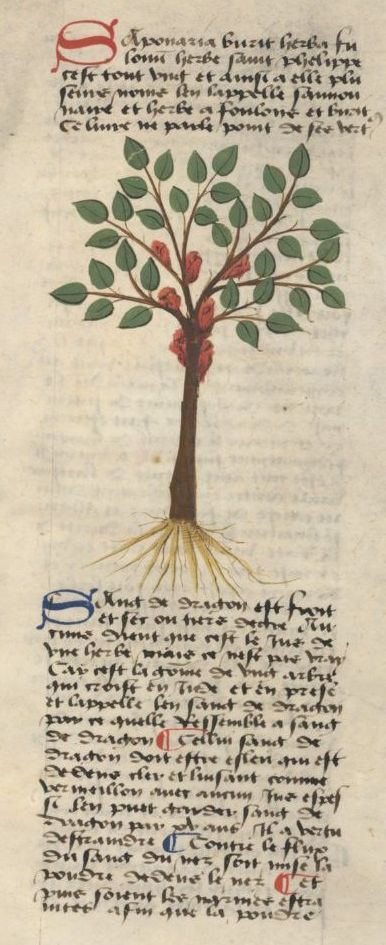 Saponaria burit herba fu
lonū herbe saint phelippe
cest tout vng et ainsi a elle plu
seurs noms len lappelle sauon
naire et herbe a foulons et burit
Ce liure ne parle point de ses vert
Sang de dragon est froit
et sec ou tiers degre Au
cuns dient que cest le ius de
vne herbe mais ce nest pas vray
Car cest la gōme de vng arbre
qui croist en Inde et en perse
et lappelle len sang de dragon
pour ce quelle ressemble a sang
de dragon Cellui sang de
dragon doit estre esleu qui est
dedens cler et luisant comme
vermeillon auec aucun ius espes
Si len puet garder sang de
dragon par xv ans Il a vertu
destraindre Contre le flux
du sang du nez soit mise la
poudre dedens le nez Et
puis soient les narines estra
intes afin que la poudre